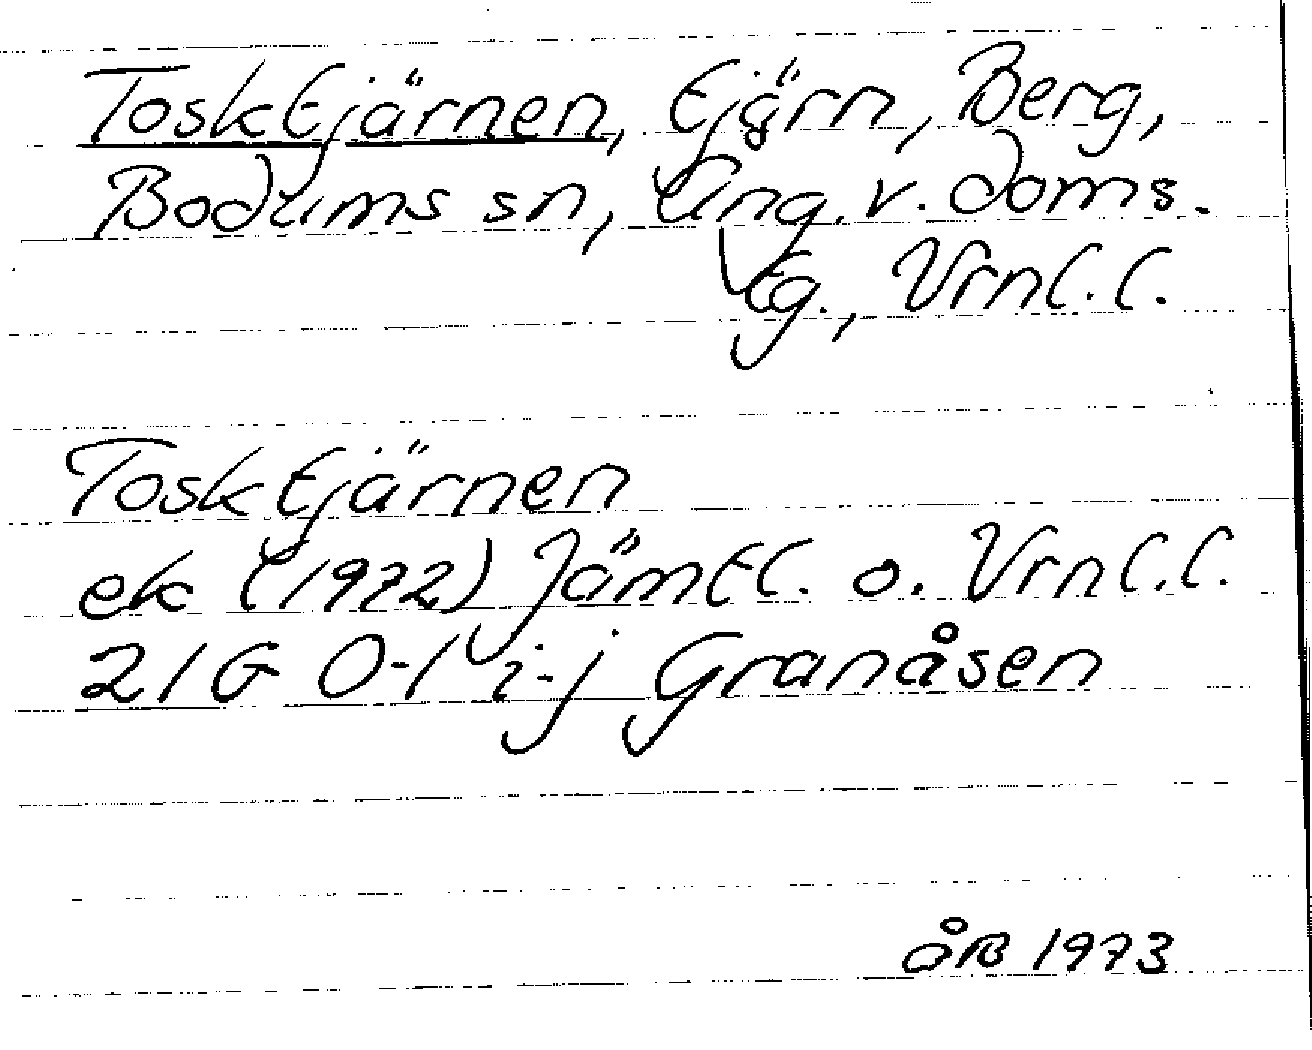 Tosktjärnen, tjärn, Berg,
Bodums sn, Ång. v. doms.
tg., Vrnl.l.
Tosktjärnen
ek (1972) Jämtl. o. Vrnl.l.
21G 0-1 i-j Granåsen
ÅB 1973